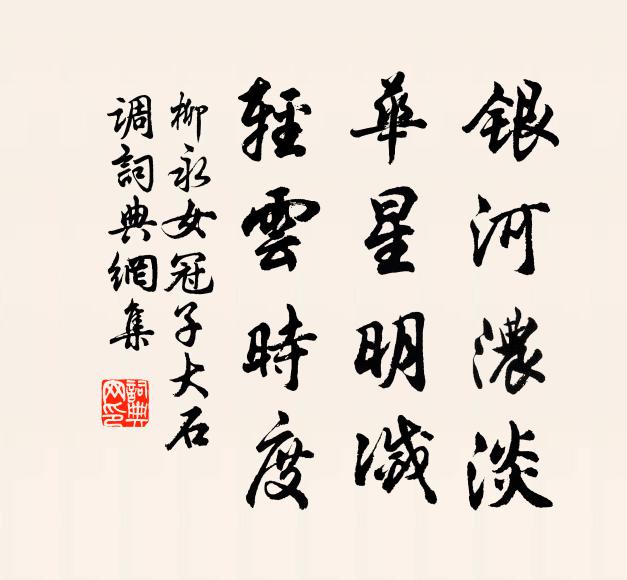 银河濃淡
華星明滅
輕雲時度
柳永女冠子大石
调詞典網集
詞典网印